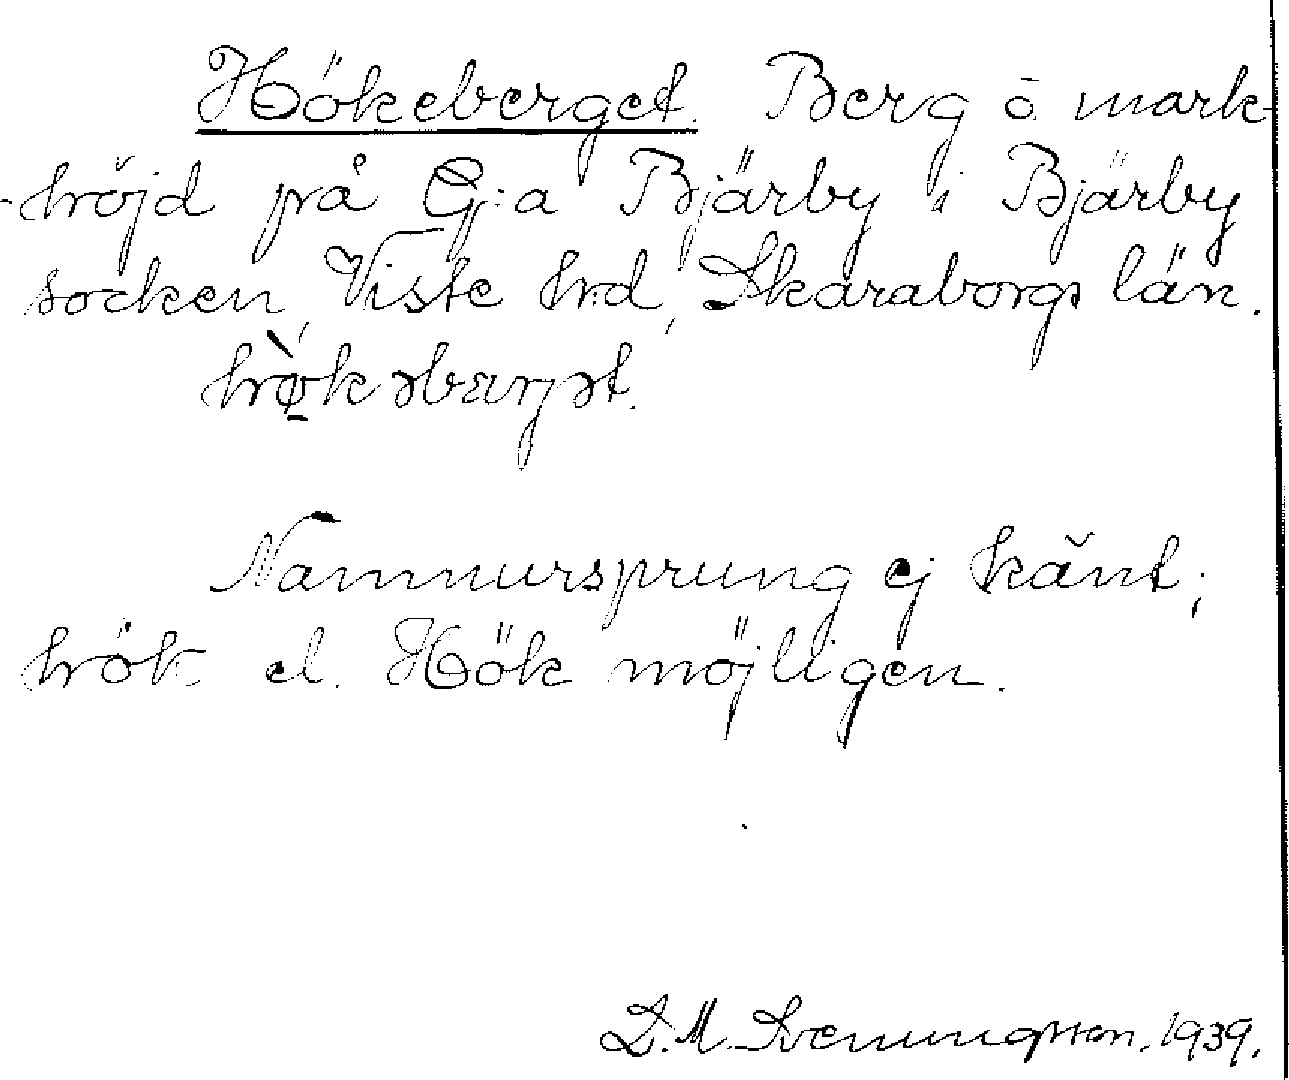 Hökeberget. Berg o. mark-
-höjd på G:a Bjärby i Bjärby
socken, Viste hrd, Skaraborgs län.
Namnursprung ej känt;
hök el. Hök möjligen.
D. M. Svenningsson. 1939.